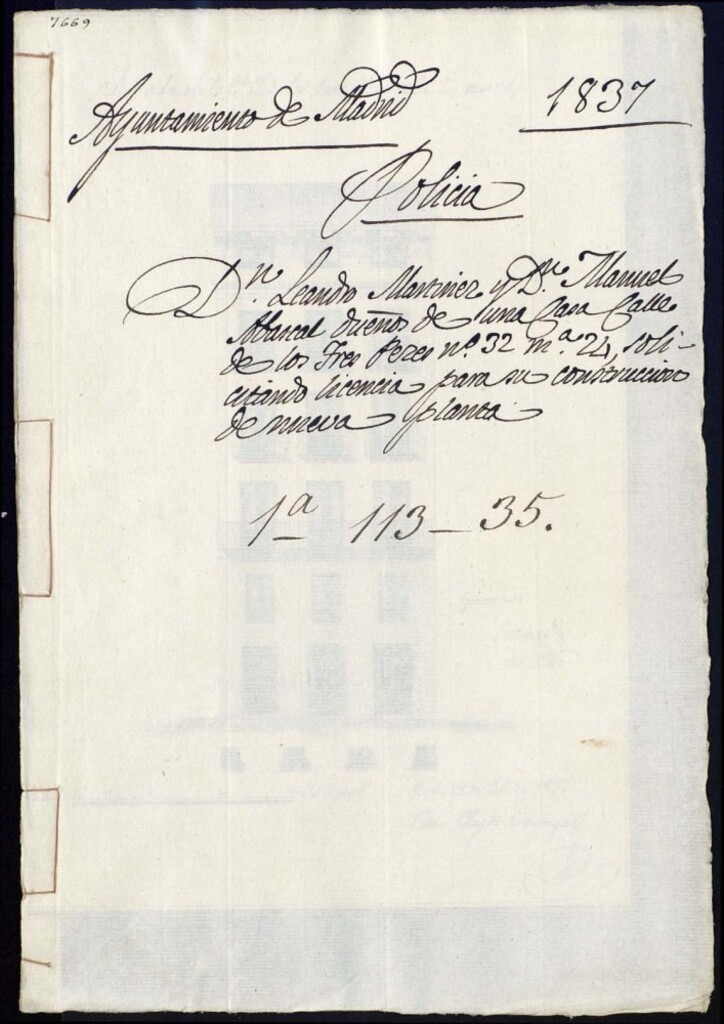 7669
Ayuntamiento de Madrid 1837
Policia
Dn. Leandro Martinez y Dn. Manuel
Abascal dueños de una Casa Calle
de los Tres Peces nº. 32 mª. 24, soli-
citando licencia para su construccion
de nueva planta
1ª 113 - 35.